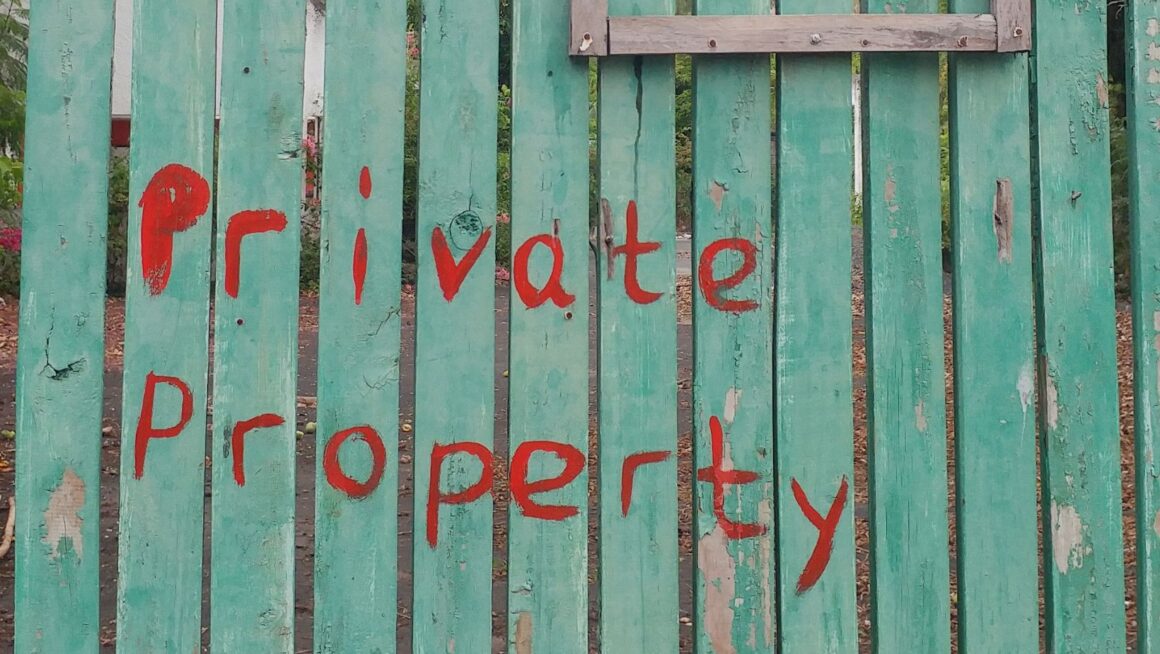 Private
Property